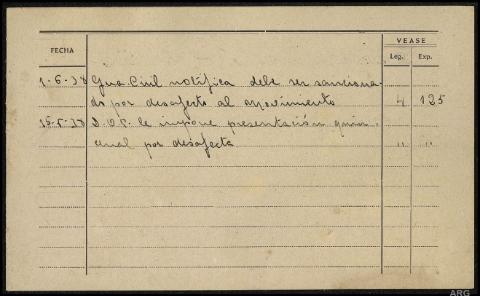 FECHA VEASE
Leg. Exp.
1-6-38 Gua Civil notifica debe ser sanciona-
do por desafecto al movimiento 4 125
15-5-38 D.O.P. le impone presentación quin-
cenal por desafecta " "
ARG